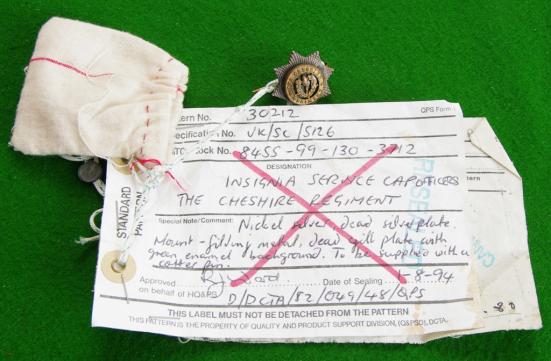 tern No. 30212 QPS Form
ecification No. UK/SC/5126
ATO Stock No. 8455-99-130-3712
DESIGNATION
INSIGNIA SERVICE CAP OFFICERS
THE CHESHIRE REGIMENT
Special Note/Comment: Nickel silver, dead silver plate.
Mount - gilding metal, dead gilt plate with
green enamel background. To be supplied with a
cotter pin.
Approved Date of Sealing 1-8-94
on behalf of HQ&PS
D/DCTA/82/049/48/QPS
THIS LABEL MUST NOT BE DETACHED FROM THE PATTERN
THIS PATTERN IS THE PROPERTY OF QUALITY AND PRODUCT SUPPORT DIVISION, (Q&PSD), DCTA.
STANDARD
PATTERN